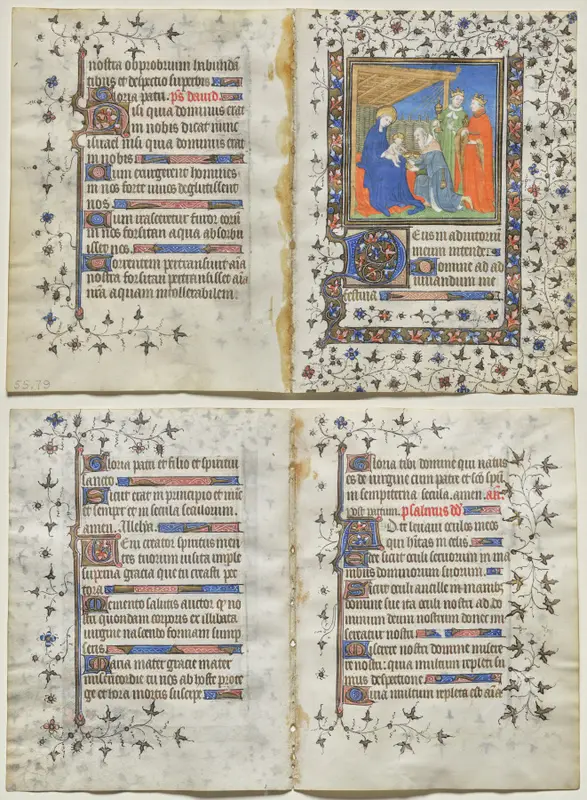 nostra obprobrium habunda
tibus et despectio superbis
Gloria patri. ps david
Nisi quia dominus erat
in nobis dicat nunc
israel nisi quia dominus erat
in nobis
Cum exurgerent homines
in nos forte vivos deglutissent
nos
Cum irasceretur furor eorum
in nos forsitan aqua absorbu
isset nos
Torrentem pertransivit aīa
nostra forsitan pertransisset aīa
nr̄a aquam intollerabilem
55.79
Deus in adiutorium
meum intende
Domine ad ad
iuvandum me
festina
Gloria patri et filio et spiritui
sancto
Sicut erat in principio et nūc
et semper et in secula seculorum
amen. Alleluya
Veni creator spiritus men
tes tuorum visita imple
superna gracia que tu creasti pec
tora
Memento salutis auctor qͥ no
stri quondam corporis ex illibata
virgine nascendo formam sump
seris
Maria mater gracie mater
misericordie tu nos ab hoste prote
ge et hora mortis suscipe
Gloria tibi domine qui natus
es de virgine cum patre et sc̄o spū
in sempiterna secula. amen. an
post partum. psalmus dd
Ad te levavi oculos meos
qui habitas in celis
Ecce sicut oculi servorum in ma
nibus dominorum suorum
Sicut oculi ancille in manib;
domine sue ita oculi nostri ad do
minum deum nostrum donec mi
sereatur nostri
Miserere nostri domine misere
re nostri: quia multum repleti su
mus despectione
Quia multum repleta est aīa